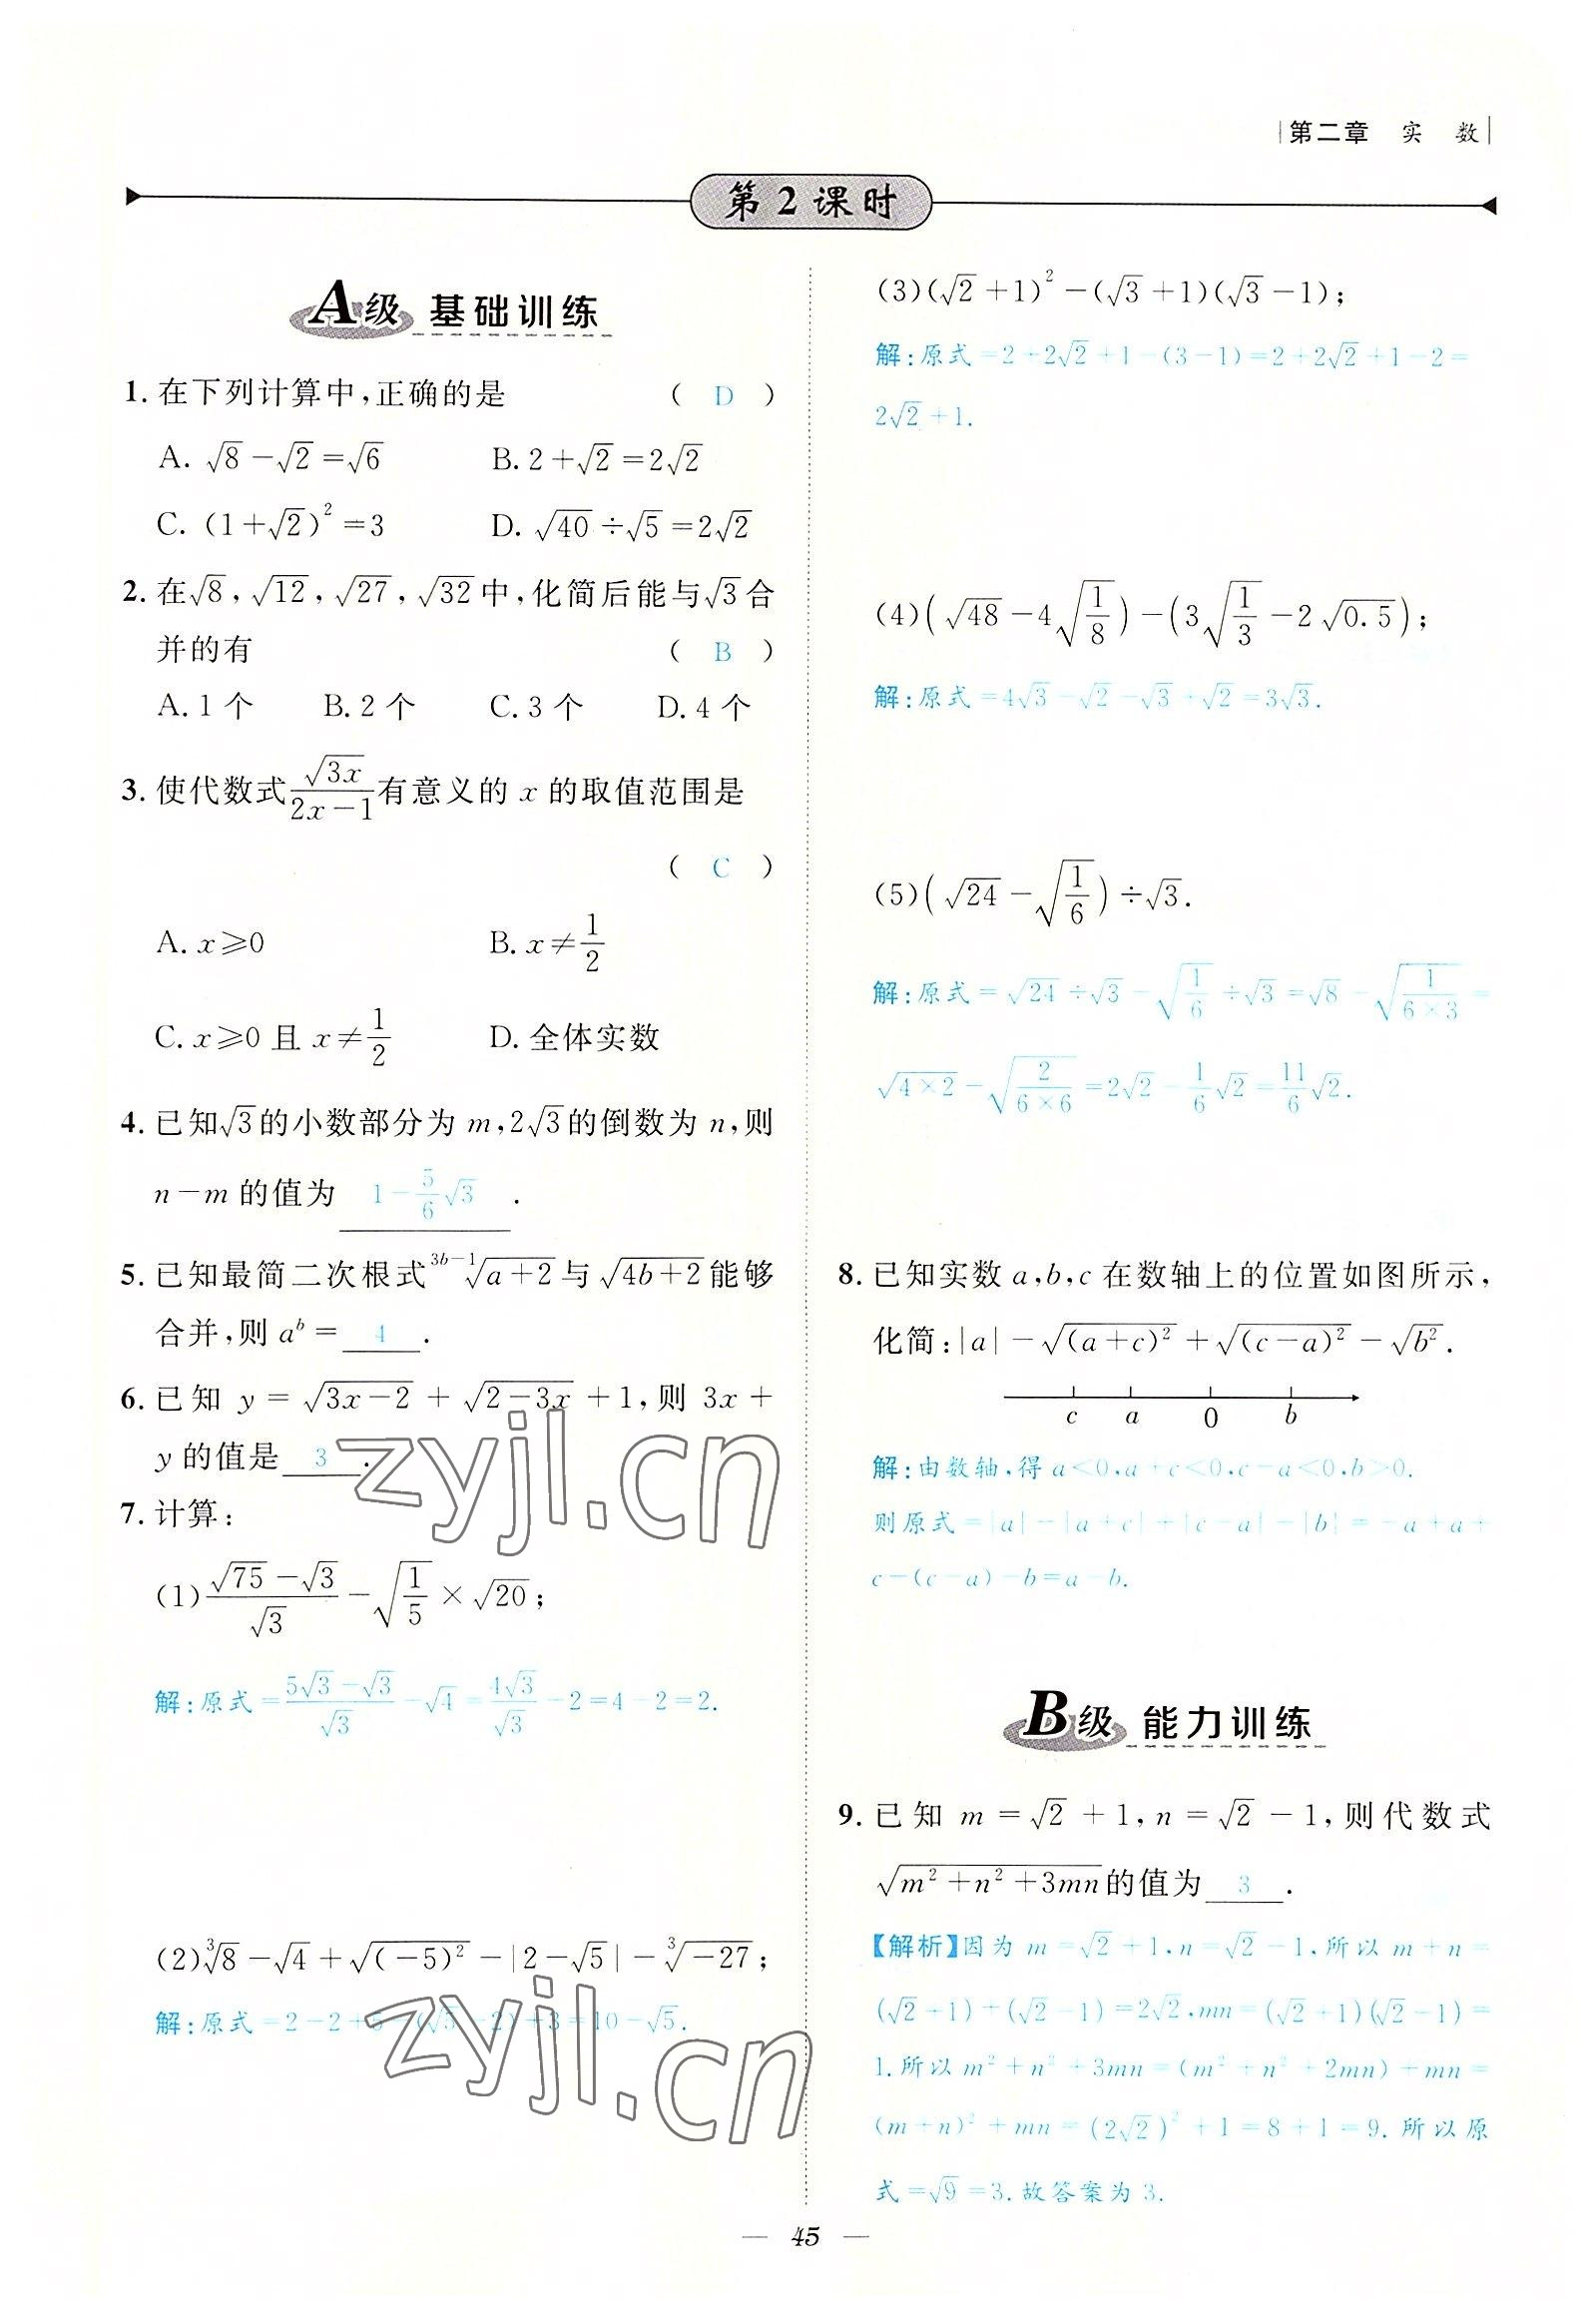 第二章 实 数
第2课时
A级 基础训练
1. 在下列计算中,正确的是 ( D )
A. √8－√2＝√6 B. 2＋√2＝2√2
C. (1＋√2)²＝3 D. √40÷√5＝2√2
2. 在√8,√12,√27,√32中,化简后能与√3合
并的有 ( B )
A. 1个 B. 2个 C. 3个 D. 4个
3. 使代数式√(3x)/(2x－1)有意义的 x 的取值范围是
( C )
A. x⩾0 B. x≠1/2
C. x⩾0 且 x≠1/2 D. 全体实数
4. 已知√3的小数部分为 m,2√3的倒数为 n,则
n－m 的值为 1－5/6√3 .
5. 已知最简二次根式 ³ᵇ⁻¹√(a＋2)与√(4b＋2)能够
合并,则 aᵇ＝ 4 .
6. 已知 y＝√(3x－2)＋√(2－3x)＋1,则 3x＋
y 的值是 3 .
7. 计算:
(1)(√75－√3)/√3－√(1/5)×√20;
解:原式＝(5√3－√3)/√3－√4＝4√3/√3－2＝4－2＝2.
(2)³√8－√4＋√((－5)²)－|2－√5|－³√(－27);
解:原式＝2－2＋5－(√5－2)＋3＝10－√5.
(3)(√2＋1)²－(√3＋1)(√3－1);
解:原式＝2＋2√2＋1－(3－1)＝2＋2√2＋1－2＝
2√2＋1.
(4)(√48－4√(1/8))－(3√(1/3)－2√0.5);
解:原式＝4√3－√2－√3＋√2＝3√3.
(5)(√24－√(1/6))÷√3.
解:原式＝√24÷√3－√(1/6)÷√3＝√8－√(1/(6×3))＝
√(4×2)－√(2/(6×6))＝2√2－1/6√2＝11/6√2.
8. 已知实数 a,b,c 在数轴上的位置如图所示,
化简:|a|－√((a＋c)²)＋√((c－a)²)－√(b²).
c a 0 b
解:由数轴,得 a<0,a＋c<0,c－a<0,b>0.
则原式＝|a|－|a＋c|＋|c－a|－|b|＝－a＋a＋
c－(c－a)－b＝a－b.
B级 能力训练
9. 已知 m＝√2＋1,n＝√2－1,则代数式
√(m²＋n²＋3mn)的值为 3 .
【解析】因为 m＝√2＋1,n＝√2－1,所以 m＋n＝
(√2＋1)＋(√2－1)＝2√2,mn＝(√2＋1)(√2－1)＝
1.所以 m²＋n²＋3mn＝(m²＋n²＋2mn)＋mn＝
(m＋n)²＋mn＝(2√2)²＋1＝8＋1＝9.所以原
式＝√9＝3.故答案为 3.
— 45 —
zyjl.cn
zyjl.cn